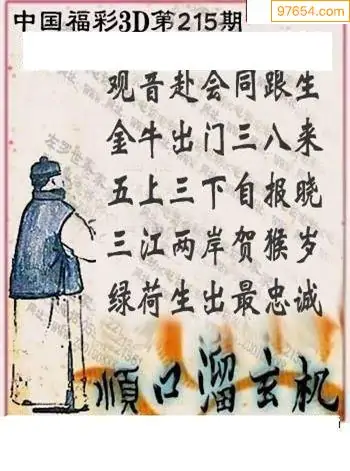 97654.com
中国福彩3D第215期
观音赴会同跟生
金牛出门三八来
五上三下自报晓
三江两岸贺猴岁
绿荷生出最忠诚
順口溜玄机